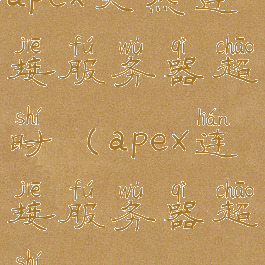 apex 连
jiē fú wù qì chāo
接服务器超
shí lián
时 (apex连
jiē fú wù qì chāo
接服务器超
shí